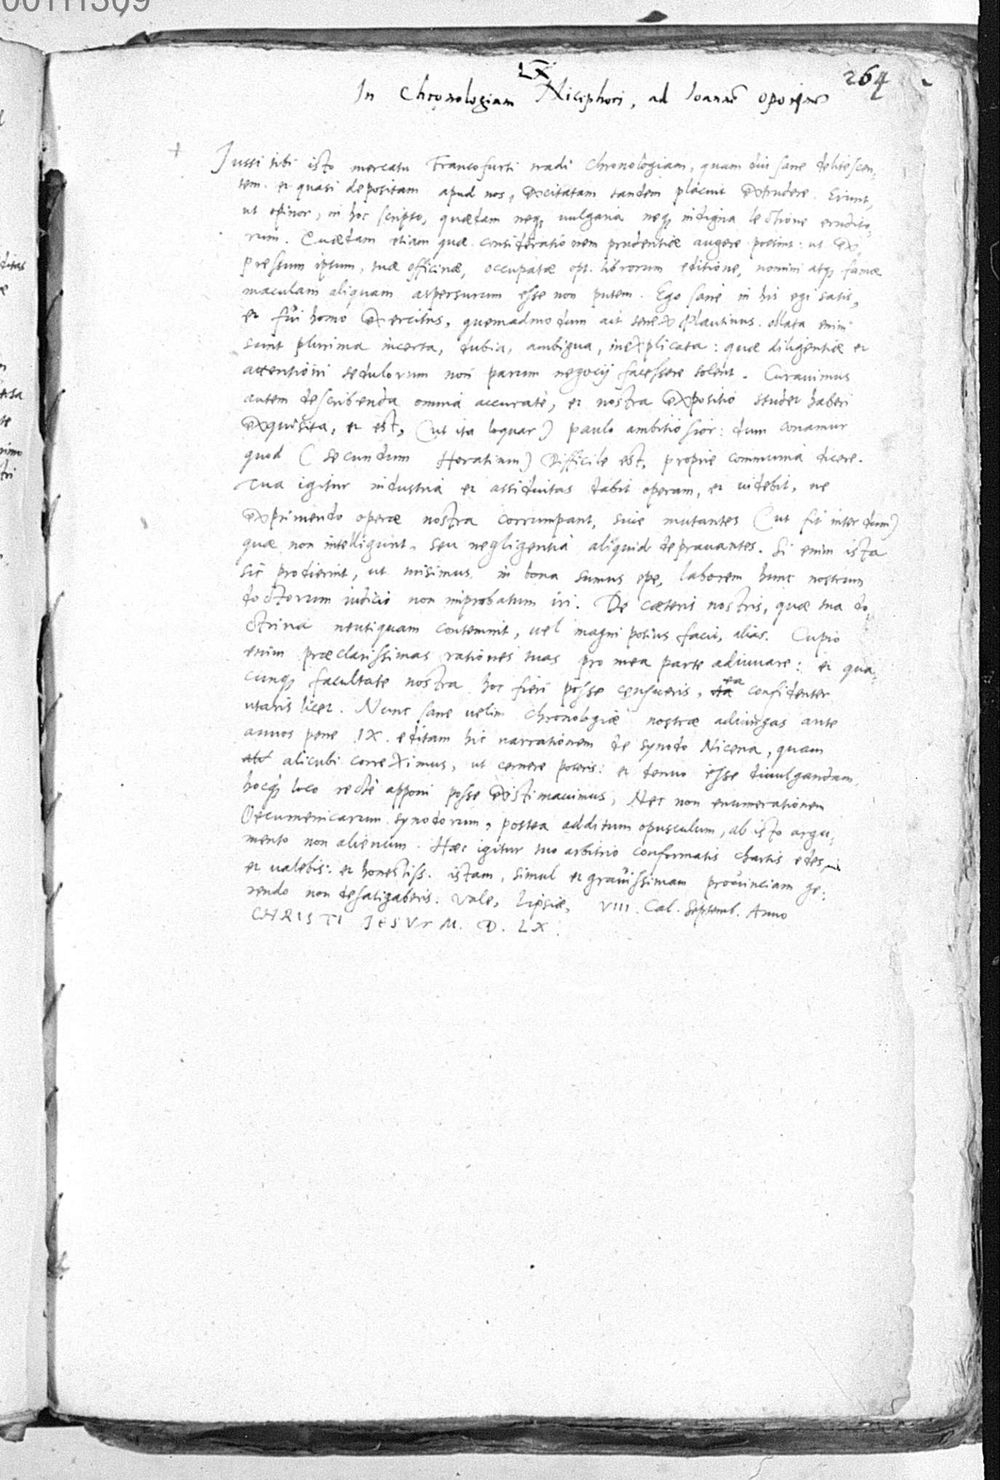 00111309
264
LX
In Chronologiam Nicephori, ad Ioannē Oporinū
Iussi tibi isto mercatu Francofurti tradi Chronologiam, quam diu sane delitescen,
tem. et quasi depositam apud nos, excitatam tandem placuit extrudere. Erunt,
ut opinor, in hoc scripto, quædam neq; uulgaria neq; indigna lectione erudito,
rum. Quædam etiam quæ considerationem prudentiæ augere possint: ut ex,
pressum ipsum, tuæ officinæ, occupatæ opt. librorum editione, nomini atq; famæ
maculam aliquam aspersurum esse non putem. Ego sanè in his egi satis,
et fui homo exercitus, quemadmodum ait senex Plautinus. oblata enim
sunt plurima incerta, dubia, ambigua, inexplicata: quæ diligentiæ et
attentioni sedulorum non parum negocij facessere solent. Curauimus
autem describenda omnia accuratè, et nostra expositio studet haberi
exquisita, et est, (ut ita loquar) paulo ambitiosior: dum conamur
quod (secundum Horatium) difficile est, proprie communia dicere.
Tua igitur industria et assiduitas dabit operam, et uidebit, ne
exprimendo operæ nostra corrumpant, siue mutantes (ut fit interdum)
quæ non intelligunt, seu negligentia aliquid deprauantes. Si enim ista
sic prodierint, ut misimus, in bona sumus spe, laborem hunc nostrum
doctorum iudicio non improbatum iri. De cæteris nostris, quæ tua do,
ctrina neutiquam contemnit, uel magni potius facit, alias. Cupio
enim præclarissimas rationes tuas pro mea parte adiuuare: et qua,
cunq; facultate nostra hoc fieri posse censueris, ea confidenter
utaris licet. Nunc sane uelim Chronologiæ nostræ adiungas ante
annos pene IX. editam hic narrationem de Synodo Nicena, quam
alicubi correximus, ut cernere poteris: et denuo esse diuulgandam,
hocq; loco rectè apponi posse existimauimus, Nec non enumerationem
Oecumenicarum synodorum, postea additum opusculum, ab isto argu,
mento non alienum. Hæc igitur tuo arbitrio conformatis chartis edes,
et ualebis: et honestiss. istam, simul et grauissimam prouinciam ge,
rendo non defatigaberis. Vale, Lipsiæ, VIII. Cal. Septemb. Anno
CHRISTI IESV M. D. LX.